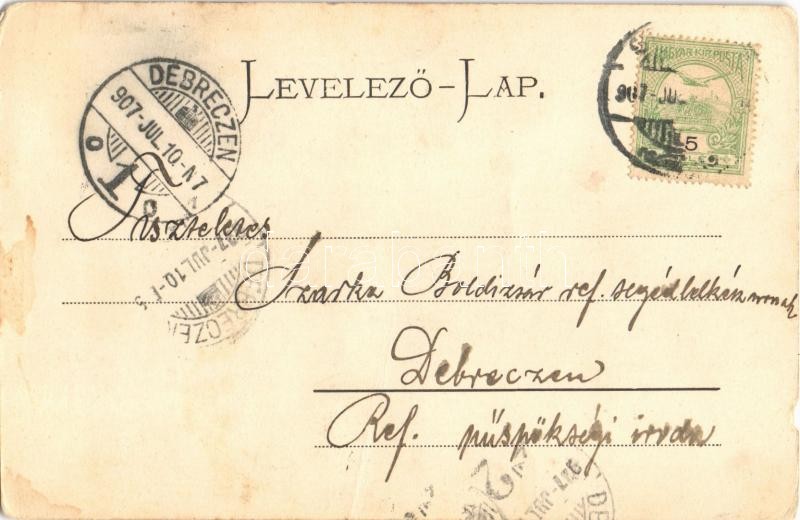 LEVELEZŐ-LAP.
MAGYAR KIR. POSTA
5
DEBRECZEN
907-JUL.10.-A7
907-JUL
Tiszteletes
Szarka Boldizsár ref. segédlelkész urnak
Debreczen
Ref. püspökségi iroda
DEBRECZEN
JUL.10.